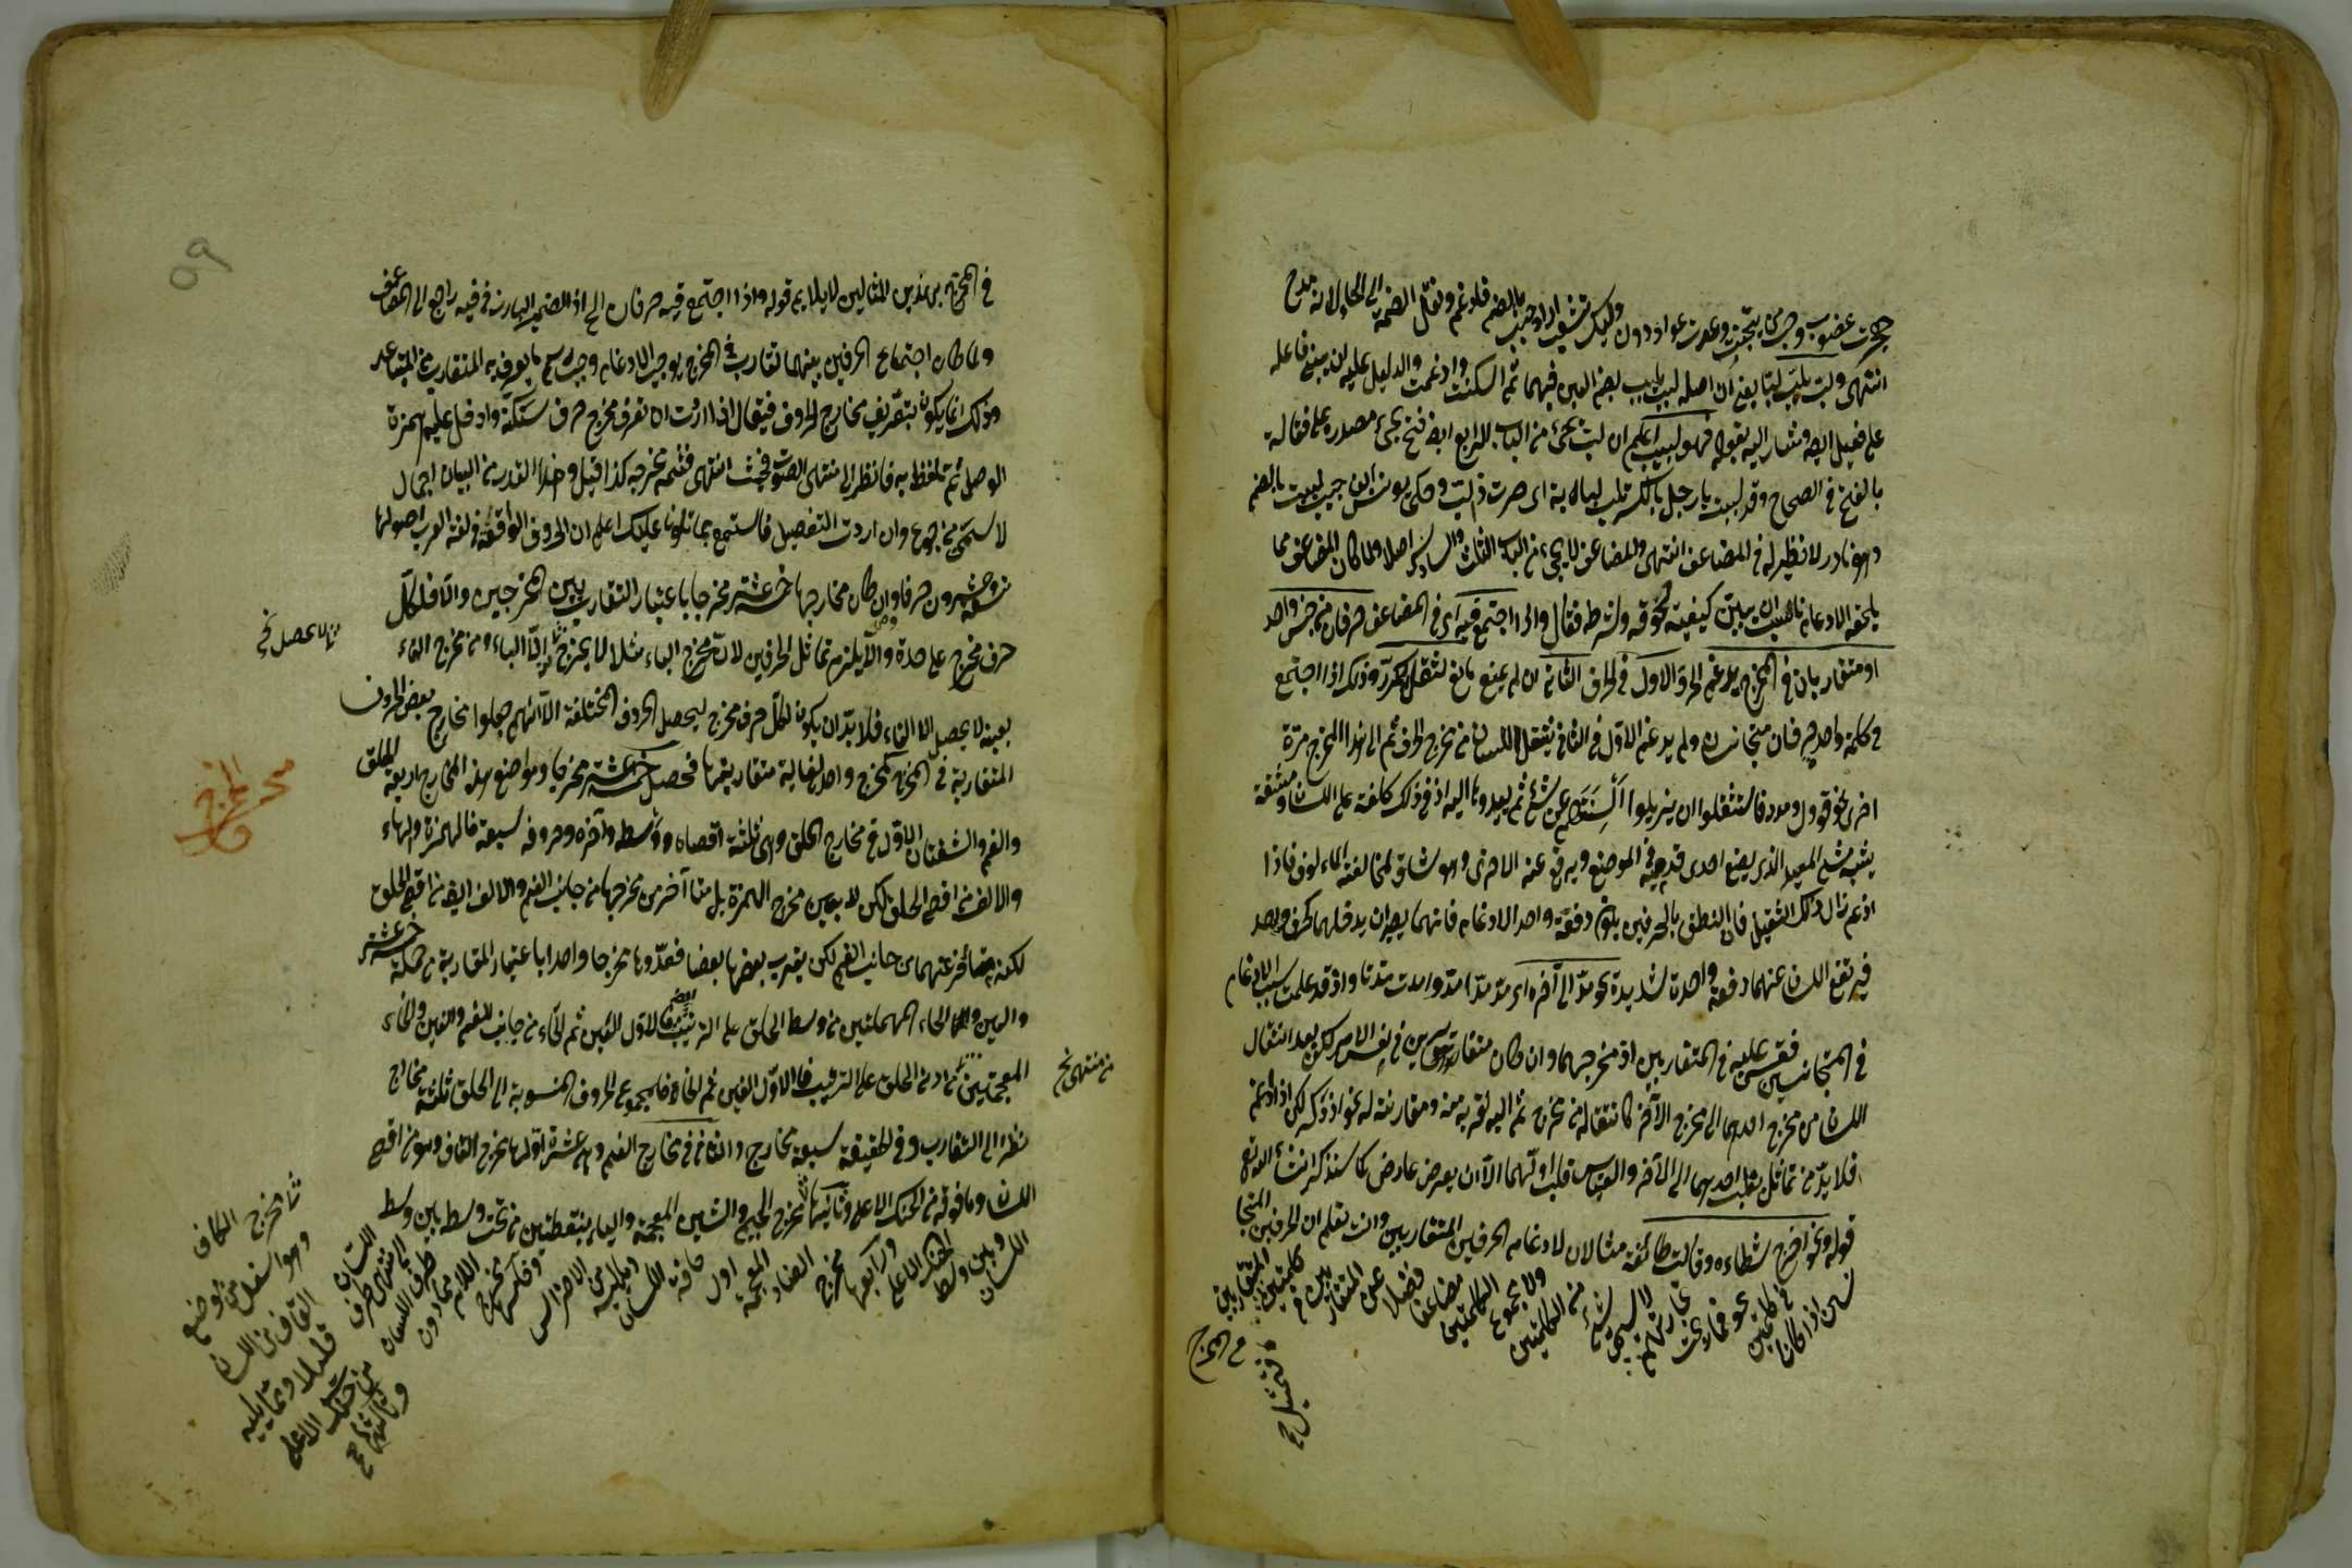 انتهى ولبّ يلبّ لبّا يعني أن اصله لبب يلبب بضم العين فيهما ثم اسكنت وادغمت والدليل عليه ان يبنى فاعله
على فعيل ايضا ومثار اليه بقوله فهو لبيب اعلم ان لبّ يجئ من الباب الرابع ايضا فتح يجئ مصدره على فعالة
بالفتح في الصحاح وقد لببت يا رجل بالكسر تلب لبابة اى صرت ذا لب وحكى يونس بن حبيب لببت بالضم
وهو نادر لا نظير له في المضاعف انتهى والمضاعف لا يجئ من الباب الثالث والسادس اصلا ولما كان المضاعف مما
يلحقه الادغام ناسب ان يبين كيفية لحوقه وشرطه فقال واذا اجتمع فيه اى في المضاعف حرفان من جنس واحد
او متقاربان في المخرج يدغم الحرف الاول في الحرف الثاني ان لم يمنع مانع لثقل المكرر وذلك اذا اجتمع
في كلمة واحدة حرفان متجانسان ولم يدغم الاول في الثاني ينتقل اللسان من مخرج الحرف ثم الى هذا المخرج مرة
اخرى نحو قوول ومدد فاستثقلوا ان يزيلوا السنتهم عن شئ ثم يعيدوها اليه اذ في ذلك كلفة على اللسان ومشقة
يشبه مشى المقيد الذى يضع احدى قدميه في الموضع ويرفع عنه الاخرى وهو شاق لمخالفته المألوف فاذا
ادغم زال ذلك الثقيل فان النطق بالحرفين يكون دفعة واحد الادغام فانهما يصيران بدخلهما كحرف واحد
فيرتفع اللسان عنهما دفعة واحدة شديدة نحو مدّ الى آخره اى مدّ مدّا مدّوا مدت مدتا واذ قد علمت سبب الادغام
في المتجانسين فقس عليه في المتقاربين اذ مخرجهما وان كان متقاربين في نفس الامر لكن يعد انتقال
اللسان من مخرج احدهما الى مخرج الآخر كانتقاله من مخرج ثم اليه لقربه منه ومقارنته له نحو اذ ذكر لكن اذا ادغم
فلا بدّ من تماثل بقلب احدهما الى الآخر والقياس قلب اوّلهما الا ان يعرض عارض كما سنذكر ان شاء الله تعالى
قوله ونحو اخرج شطاءه وقالت طائفة مثالان لادغام الحرفين المتقاربين وانت تعلم ان الحرفين المتجا
نسين اذا كانا
في كلمتين
نحو فما ربحت
تجارتهم
لا يسمى شئ
من الكلمتين
ولا مجموع
الكلمتين
مضاعفا
فضلا
عن
المتقار
بين في
كلمتين
٥٩
في المخرج بهذين المثالين لا يلايم قوله واذا اجتمع فيه حرفان الخ اذ الضمير البارز في فيه راجع الى المضاعف
ولما كان اجتماع الحرفين بينهما تقارب في المخرج يوجب الادغام وجب ما يعرف به المتقارب من المتباعد
وذلك انما يكون بتعريف مخارج الحروف فيقال اذا اردت ان تعرف مخرج حرف سكنه وادخل عليه همزة
الوصل ثم تلفظ به فانظر الى منتهى الصوت فحيث انتهى فثمه مخرجه كذا قيل وهذا القدر من البيان اجمال
لا يسمن من جوع وان اردت التفصيل فاستمع بما تلونا عليك اعلم ان الحروف الواقعة في لغة العرب اصولها
تسعة وعشرون حرفا وان كان مخارجها خمسة عشر مخرجا باعتبار التقارب بين المخرجين والا فلكل
حرف مخرج على حدة والا يلزم تماثل الحرفين لان مخرج الباء مثلا لا يخرج الا الباء ومن مخرج الفاء
بعينه لا يحصل الا الفاء فلا بدّ ان يكون لكل حرف مخرج ليحصل الحروف المختلفة الا انهم جعلوا مخارج بعض الحروف
المتقاربة في المخرج كمخرج واحد لغاية متقاربتها فحصل خمسة عشر مخرجا ومواضع هذه المخارج اربعة الحلق
والفم والشفتان الاول في مخارج الحلق وهي ثلثة اقصاه ووسطه وآخره وحروفه سبعة فالهمزة والهاء
والالف من اقصى الحلق لكن لا بعين مخرج الهمزة بل هنا آخر من مخرجها من جانب الفم والالف ايضا من اقصى الحلق
لكنه متأخر عنهما من جانب الفم لكن يقرب بعضها بعضا فعدّوها مخرجا واحدا باعتبار المقاربة من جملة خمسة عشر
والعين والحاء المهملتين من وسط الحلق على الترتيب ايضا فالاول العين ثم الحاء من جانب الفم والغين والخاء
المعجمتين من ادنى الحلق على الترتيب فالاول الغين ثم الخاء فمجموع الحروف المنسوبة الى الحلق ثلثة مخارج
نظرا الى التقارب وفي الحقيقة سبعة مخارج والثاني في مخارج الفم وهي عشرة اولها مخرج القاف وهو من اقصى
اللسان وما فوقه من الحنك الاعلى وثانيها مخرج الجيم والشين المعجمة والياء بنقطتين من تحت وسط بين وسط
اللسان
وبين وسط
الحنك الاعلى
ورابعها
مخرج
الضاد
المعجمة
اول
حافة
اللسان
وما يليه
من الاضراس
وخامسها
مخرج
اللام
ما دون
طرف اللسان
الى منتهى طرف
اللسان
مخرج الكاف
وهو اسفل من موضع
القاف من اللسان
قليلا ومما يليه
من حنك الاعلى
مخرج